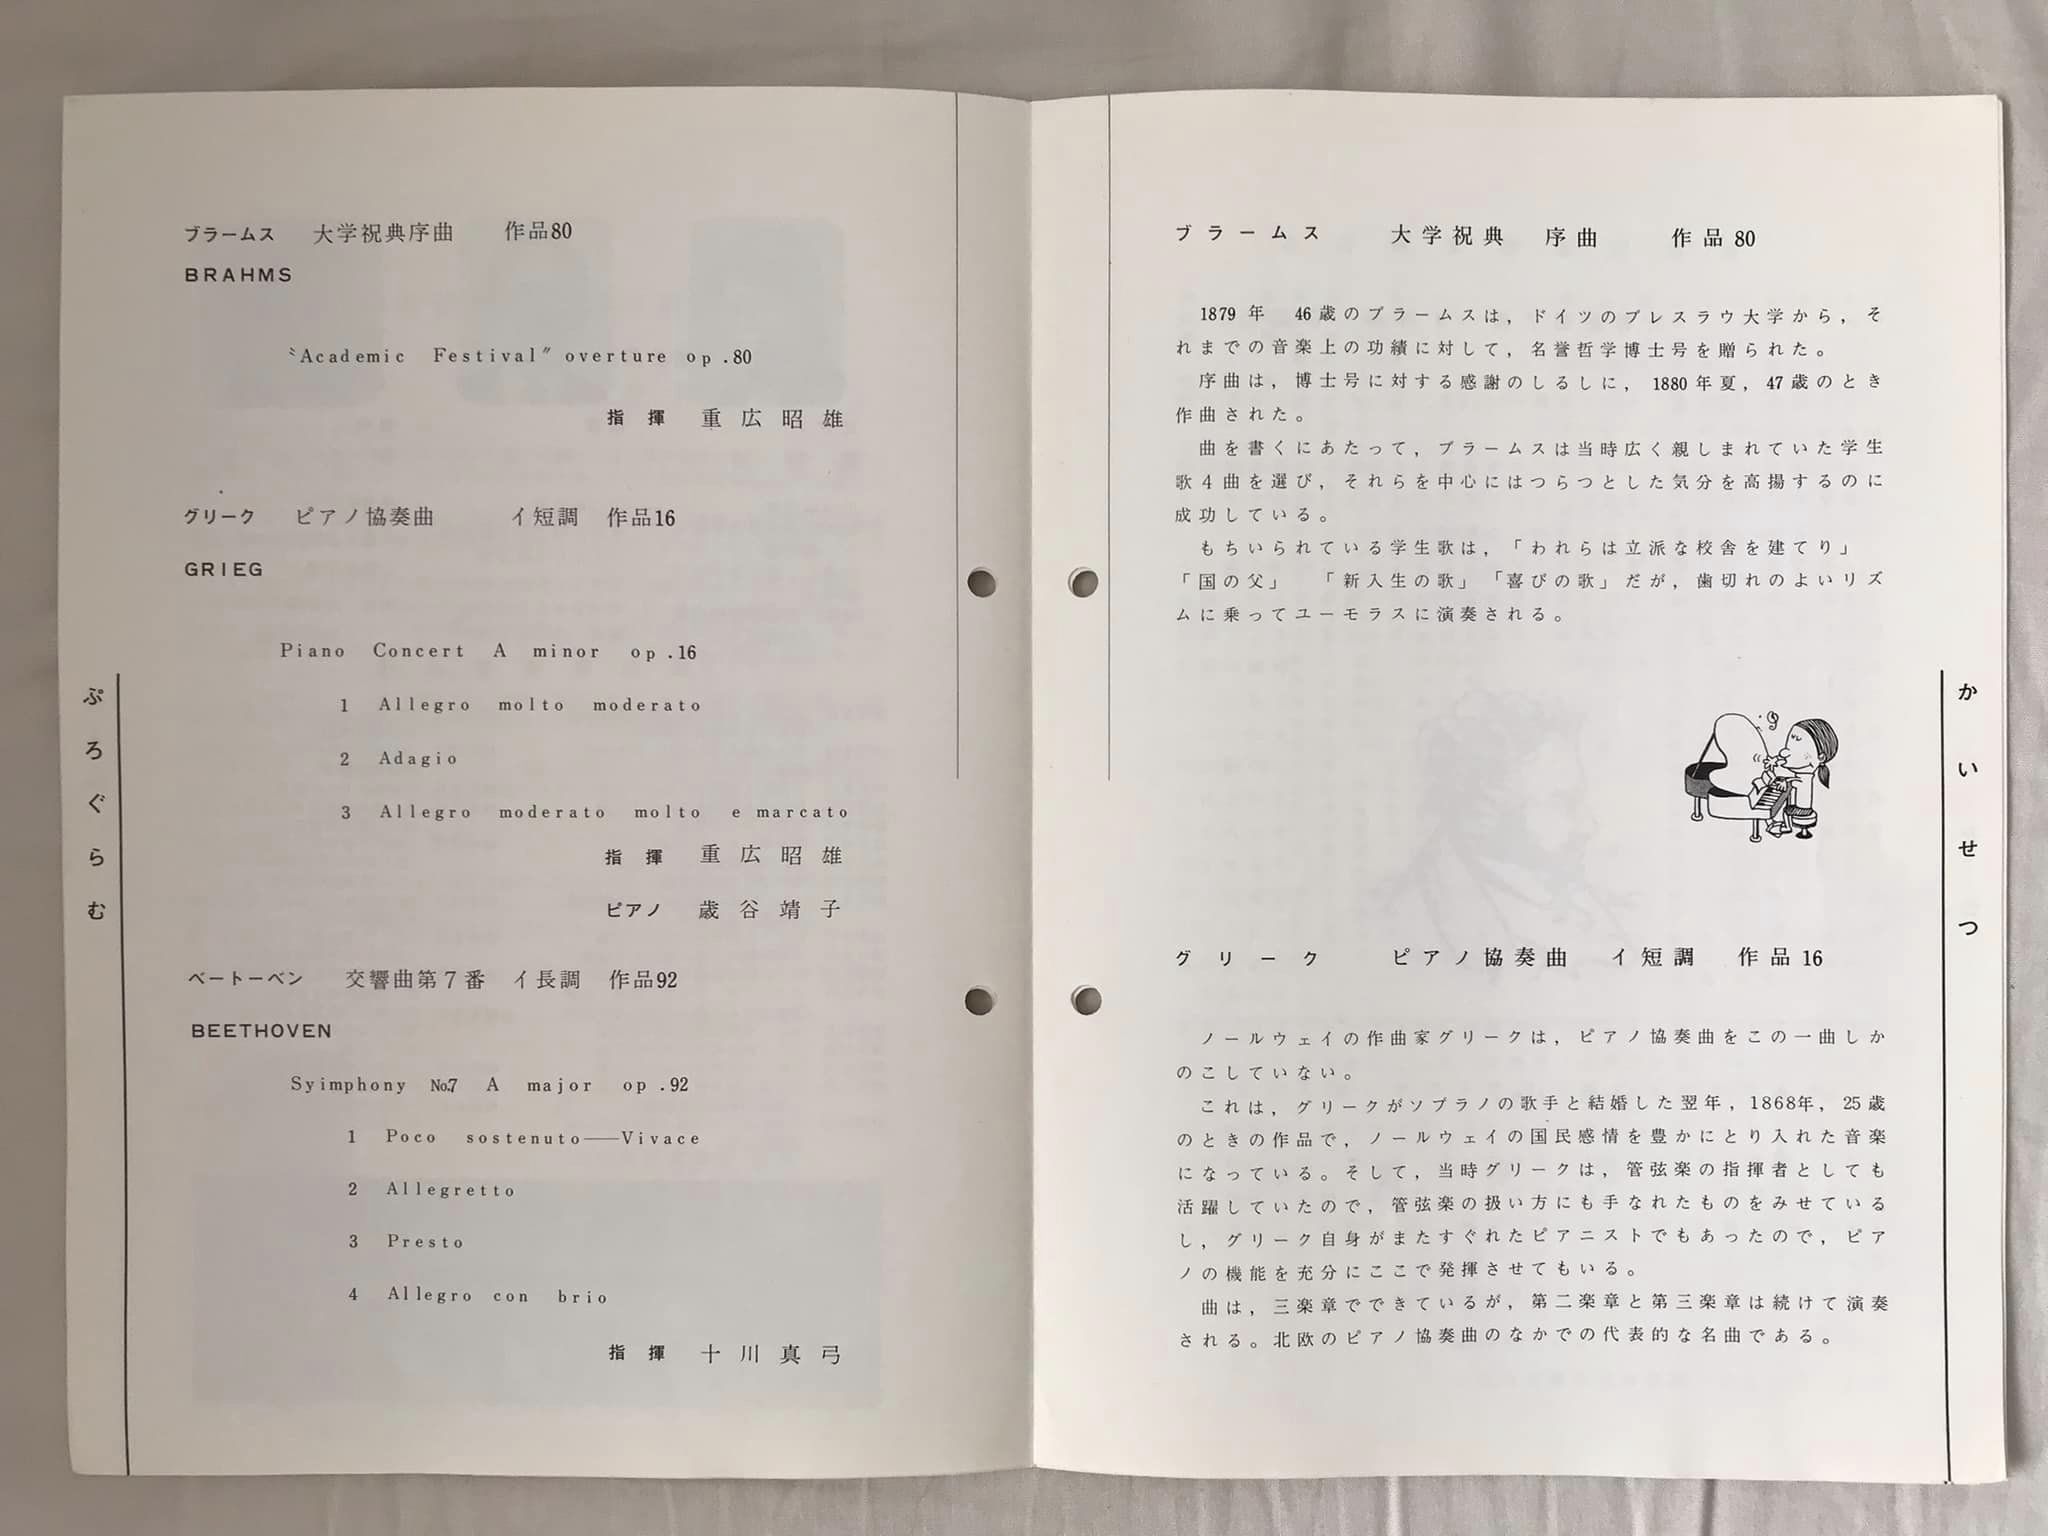 ぷろぐらむ
ブラームス 大学祝典序曲 作品80
BRAHMS
〝Academic Festival〞overture op.80
指揮 重広昭雄
グリーク ピアノ協奏曲 イ短調 作品16
GRIEG
Piano Concert A minor op.16
1 Allegro molto moderato
2 Adagio
3 Allegro moderato molto e marcato
指揮 重広昭雄
ピアノ 歳谷靖子
ベートーベン 交響曲第7番 イ長調 作品92
BEETHOVEN
Syimphony №7 A major op.92
1 Poco sostenuto——Vivace
2 Allegretto
3 Presto
4 Allegro con brio
指揮 十川真弓
かいせつ
ブラームス 大学祝典 序曲 作品80
1879年 46歳のブラームスは，ドイツのブレスラウ大学から，そ
れまでの音楽上の功績に対して，名誉哲学博士号を贈られた。
序曲は，博士号に対する感謝のしるしに，1880年夏，47歳のとき
作曲された。
曲を書くにあたって，ブラームスは当時広く親しまれていた学生
歌4曲を選び，それらを中心にはつらつとした気分を高揚するのに
成功している。
もちいられている学生歌は，「われらは立派な校舎を建てり」
「国の父」 「新入生の歌」「喜びの歌」だが，歯切れのよいリズ
ムに乗ってユーモラスに演奏される。
グリーク ピアノ協奏曲 イ短調 作品16
ノールウェイの作曲家グリークは，ピアノ協奏曲をこの一曲しか
のこしていない。
これは，グリークがソプラノの歌手と結婚した翌年，1868年，25歳
のときの作品で，ノールウェイの国民感情を豊かにとり入れた音楽
になっている。そして，当時グリークは，管弦楽の指揮者としても
活躍していたので，管弦楽の扱い方にも手なれたものをみせている
し，グリーク自身がまたすぐれたピアニストでもあったので，ピア
ノの機能を充分にここで発揮させてもいる。
曲は，三楽章でできているが，第二楽章と第三楽章は続けて演奏
される。北欧のピアノ協奏曲のなかでの代表的な名曲である。